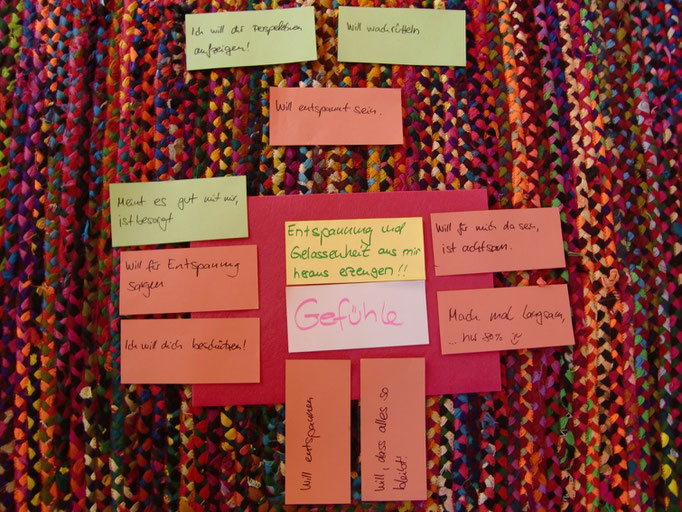 Ich will dir Perspektiven
aufzeigen!
Will wachrütteln
Will entspannt sein.
Meint es gut mit mir,
ist besorgt
Entspannung und
Gelassenheit aus mir
heraus erzeugen!!
Will für mich da sein,
ist achtsam.
Will für Entspannung
sorgen
Gefühle
Mach mal langsam,
... nur 80%
Ich will dich beschützen!
Will entspannen
Will, dass alles so
bleibt!